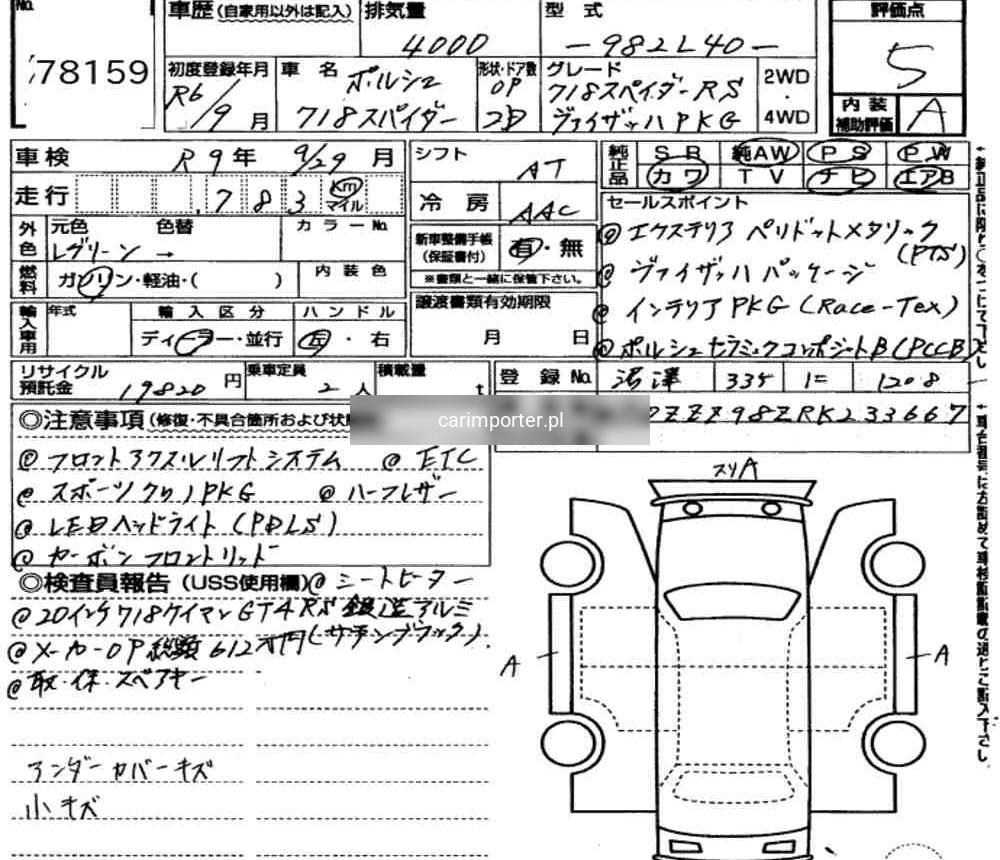 No.
78159
車歴(自家用以外は記入) 排気量 4000
型式 -982L40-
評価点 5
内装補助評価 A
初度登録年月 R6/9月
車名 ポルシェ 718スパイダー
形状・ドア数 OP 2D
グレード 718スパイダーRS ヴァイザッハPKG
2WD・4WD
車検 R9年 9/29月
シフト AT
純正品 SR 純AW PS PW
カワ TV ナビ エアB
走行 783 Km マイル
冷房 AAC
外色 元色 色替 カラーNo.
Lグリーン→
新車整備手帳(保証書付) 有・無
※書類と一緒に保管下さい。
燃料 ガソリン・軽油・( ) 内装色
譲渡書類有効期限 月 日
セールスポイント
@エクステリア ペリドットメタリック(PTS)
@ヴァイザッハ パッケージ
@インテリアPKG(Race-Tex)
@ポルシェセラミックコンポジートB(PCCB)
輸入車用 年式 輸入区分 ハンドル
ディーラー・並行 左・右
リサイクル預託金 19820円
乗車定員 2人
積載量 t
登録No. 沼津 335 1208
ZZZ98ZRK233667
carimporter.pl
◎注意事項(修復・不具合箇所および状
@フロントアクスルリフトシステム @ETC
@スポーツクロノPKG @ハーフレザー
@LEDヘッドライト(PDLS)
@カーボンフロントリッド
◎検査員報告(USS使用欄)@シートヒーター
@20インチ718ケイマンGT4RS鍛造アルミ
(サテンブラック)
@メーカーOP総額612万円
@取・保・スペアキー
アンダーカバーキズ
小キズ
スリA
A
A